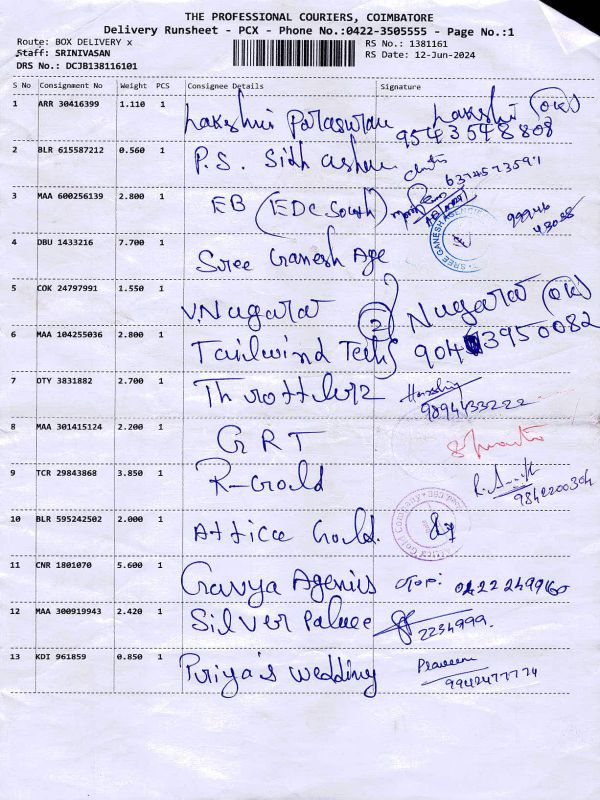 THE PROFESSIONAL COURIERS, COIMBATORE
Delivery Runsheet - PCX - Phone No.:0422-3505555 - Page No.:1
Route: BOX DELIVERY x
RS No.: 1381161
Staff: SRINIVASAN
RS Date: 12-Jun-2024
DRS No.: DCJB138116101
S No Consignment No Weight PCS Consignee Details Signature
1 ARR 30416399 1.110 1 Lakshmi Lakshmi (OK)
9543548808
2 BLR 615587212 0.560 1 P.S.
6374573591
3 MAA 600256139 2.800 1 EB (EDC South)
99946
43088
4 DBU 1433216 7.700 1 Sree Ganesh Age SREE GANESH AGENCIE
5 COK 24797991 1.550 1 V. Nugarat Nugarat (OK)
6 MAA 104255036 2.800 1 Tailwind Tech 2
7 DTY 3831882 2.700 1 Throttlerz
9894433222
8 MAA 301415124 2.200 1 GRT
9 TCR 29843868 3.850 1 R-Gould
9842200304
10 BLR 595242502 2.000 1 Attica Gould. Attica Gold Company
11 CNR 1801070 5.600 1 Gavya Agenies 0422 2499160
12 MAA 300919943 2.420 1 Silver Palace 2234999.
13 KDI 961859 0.850 1 Priya's wedding Praveen
9942477774